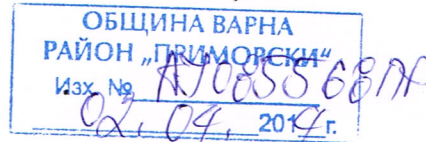 ОБЩИНА ВАРНА
РАЙОН „ПРИМОРСКИ“
Изх. № АУ085568ПР
02. 04. 2014 г.